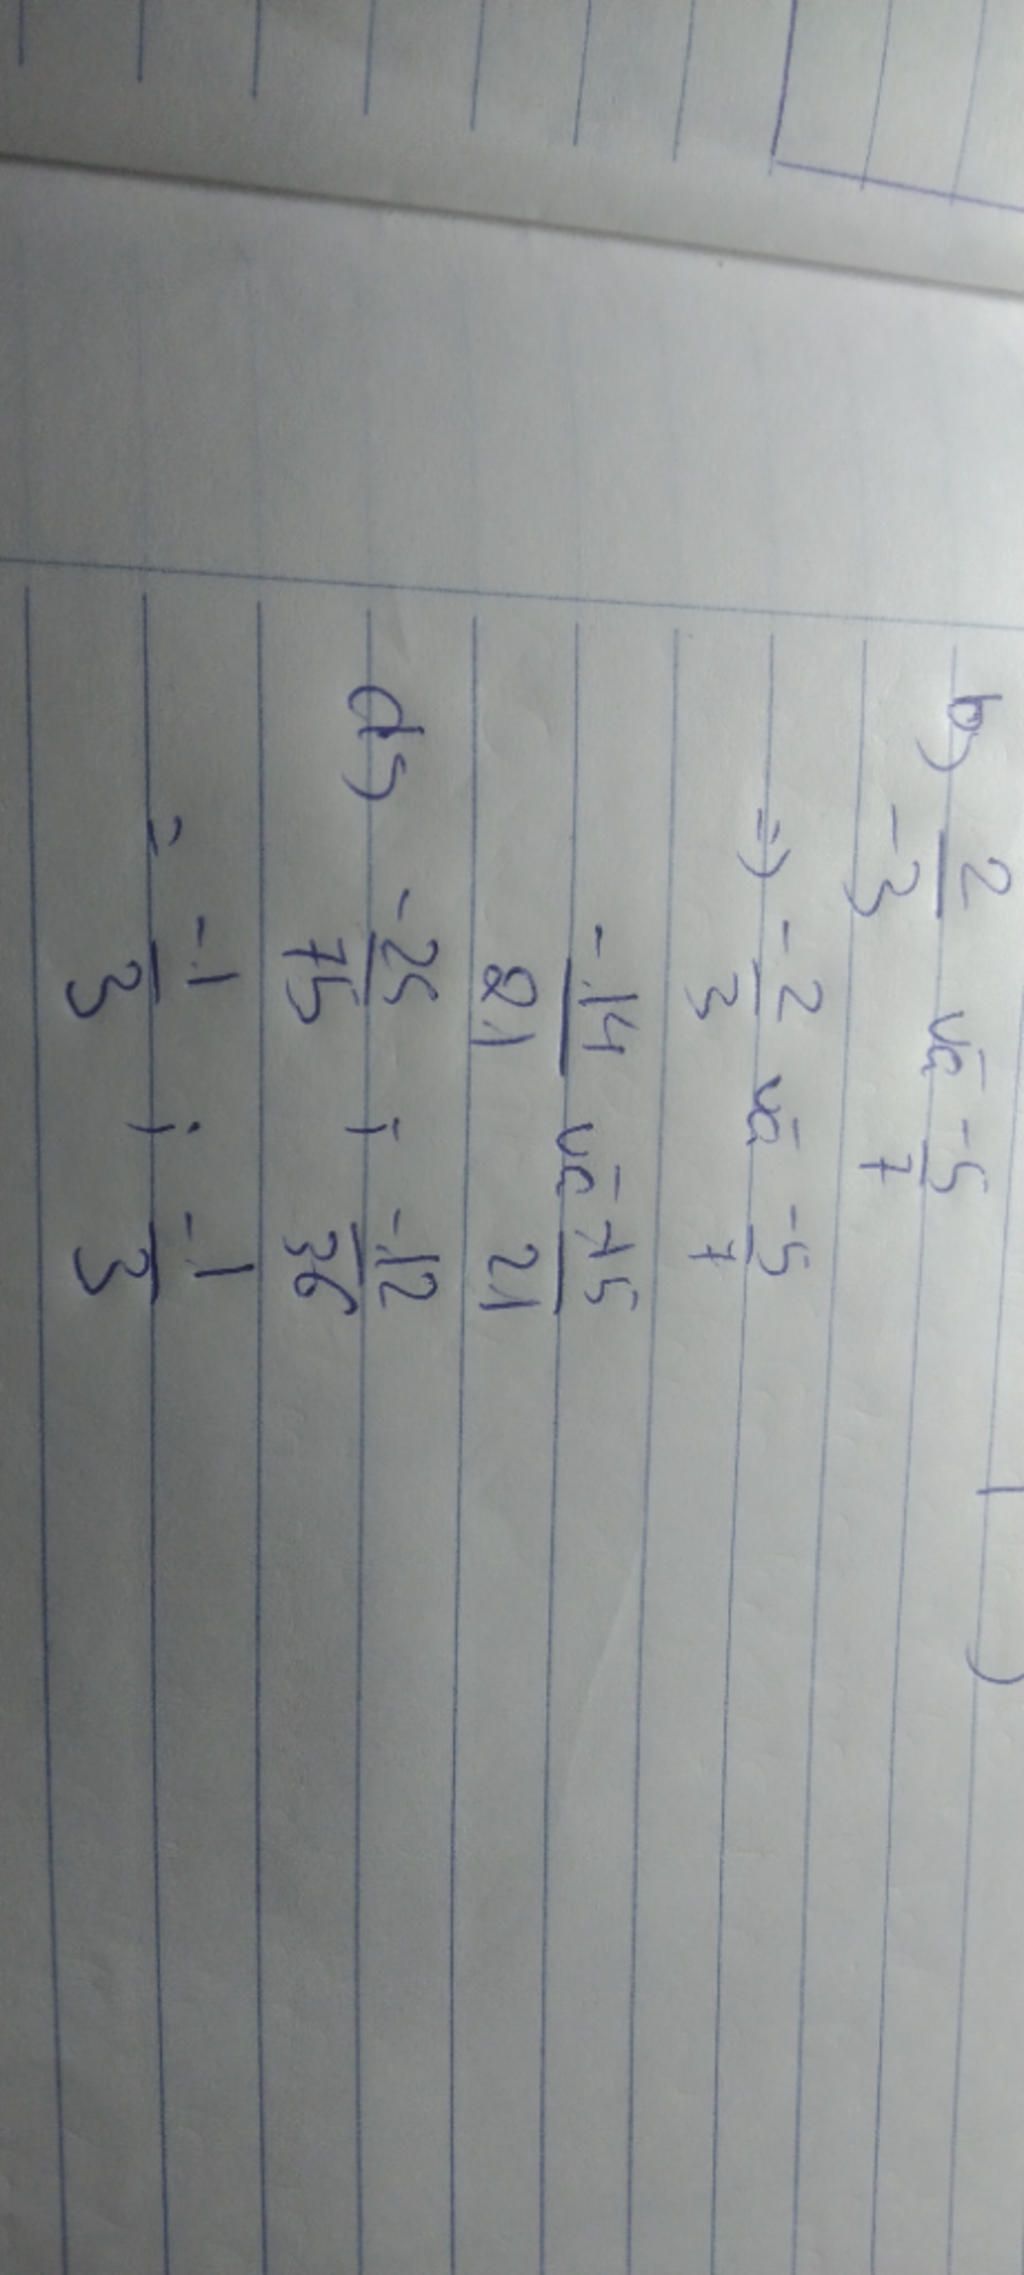 b) 2/-3 và -5/7
=) -2/3 và -5/7
-14/21 và -15/21
d) -25/75 ; -12/36
= -1/3 ; -1/3